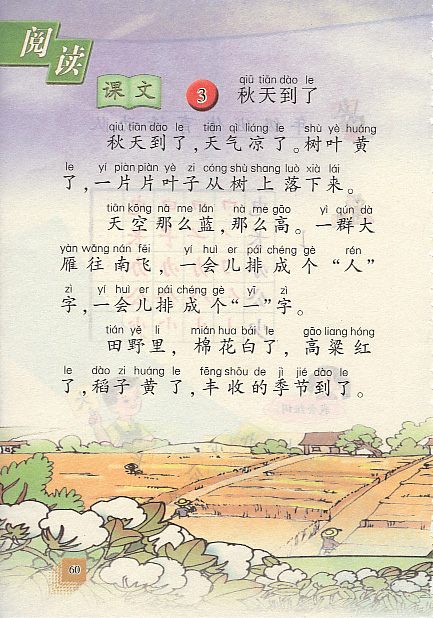 阅读
课文 3
qiū tiān dào le
秋天到了
qiū tiān dào le tiān qì liáng le shù yè huáng
秋天到了,天气凉了。树叶黄
le yí piàn piàn yè zi cóng shù shang luò xià lái
了,一片片叶子从树上落下来。
tiān kōng nà me lán nà me gāo yì qún dà
天空那么蓝,那么高。一群大
yàn wǎng nán fēi yí huì er pái chéng gè rén
雁往南飞,一会儿排成个“人”
zì yí huì er pái chéng gè yī zì
字,一会儿排成个“一”字。
tián yě lǐ mián hua bái le gāo liang hóng
田野里,棉花白了,高粱红
le dào zi huáng le fēng shōu de jì jié dào le
了,稻子黄了,丰收的季节到了。
60